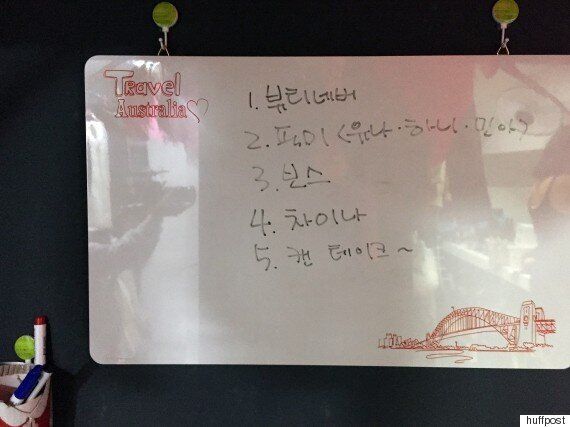 Travel
Australia
1. 뷰티네버
2. 패미 (유나·하니·민아)
3. 빈스
4. 차이나
5. 캔 테이크~
huffpost